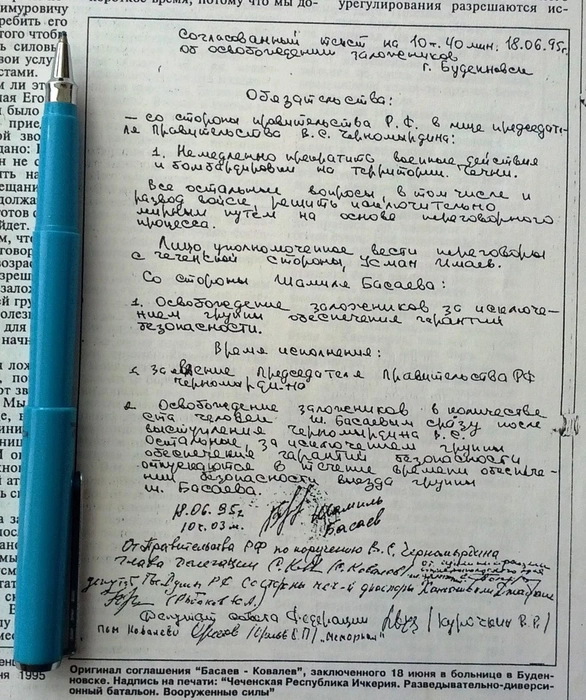 Согласованный текст на 10 ч. 40 мин. 18.06.95г.
об освобождении заложников
г. Буденновск
Обязательства:
– со стороны правительства Р.Ф. в лице председате-
ля Правительства В.С. Черномырдина:
1. Немедленно прекратить военные действия
и бомбардировки на территории Чечни.
Все остальные вопросы в том числе и
развод войск, решить исключительно
мирным путем на основе переговорного
процесса.
Лицо, уполномоченное вести переговоры
с чеченской стороны, Усман Имаев.
Со стороны Шамиля Басаева:
1. Освобождение заложников за исключе-
нием группы обеспечения гарантий
безопасности.
Время исполнения:
заявление Председателя Правительства РФ
Черномырдина
2. Освобождение заложников в количестве
ста человек Ш. Басаевым сразу после
выступления Черномырдина В.С.
Остальные за исключением группы
обеспечения гарантий безопасности
отпускаются в течение времени обеспече-
ния безопасности выезда группы
Ш. Басаева.
18.06.95г. Шамиль
10 ч. 03 м. Басаев
От Правительства РФ по поручению В.С. Черномырдина
глава делегации С. Ков (С. Ковалов)
депутат Гос. Думы РФ
(Рыбаков Ю.А.)
Депутат Совета Федерации (Курочкин В.В.)
пом Ковалева (Орлов О П) "Мемориал"
Оригинал соглашения "Басаев - Ковалев", заключенного 18 июня в больнице в Буден-
новске. Надпись на печати: "Чеченская Республика Ичкерия. Разведывательно-диверси-
онный батальон. Вооруженные силы"
урегулирования разрешаются ис-
ня 1995